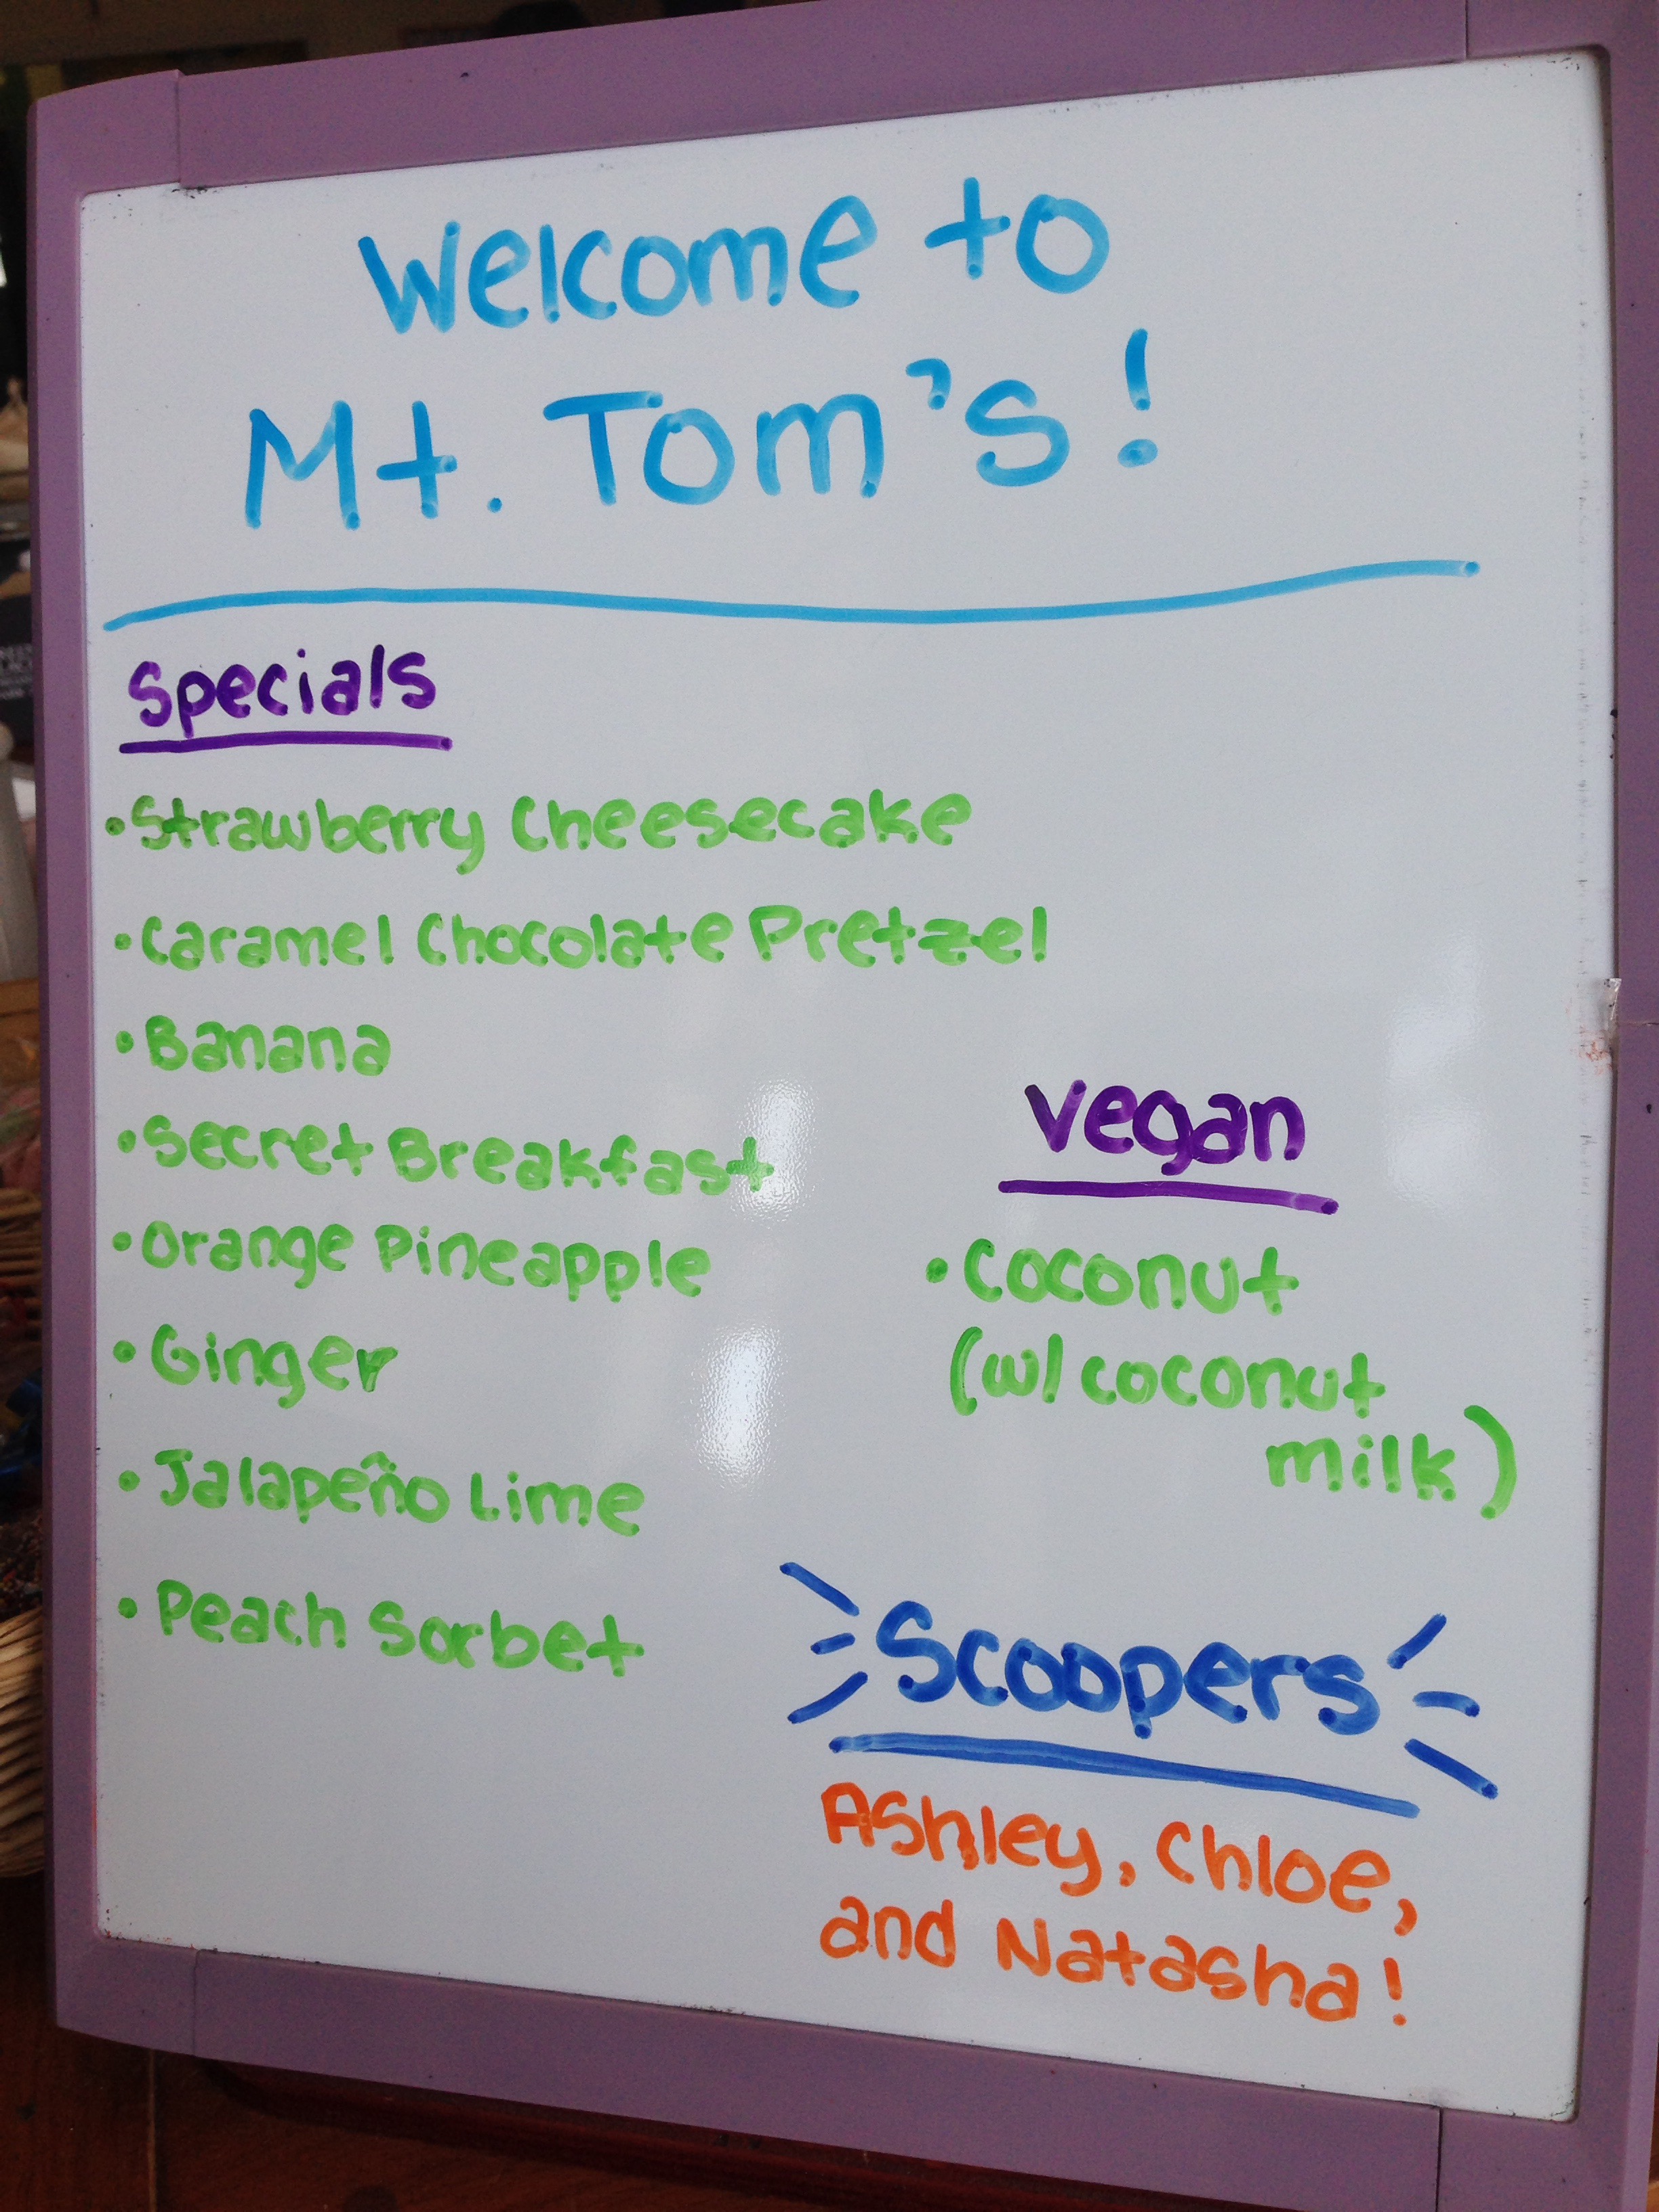 Welcome to
Mt. Tom's!
Specials
•Strawberry Cheesecake
•Caramel Chocolate Pretzel
•Banana
•Secret Breakfast
•Orange Pineapple
•Ginger
•Jalapeño Lime
•Peach Sorbet
Vegan
•Coconut
(w/ coconut
milk)
Scoopers
Ashley, Chloe,
and Natasha!